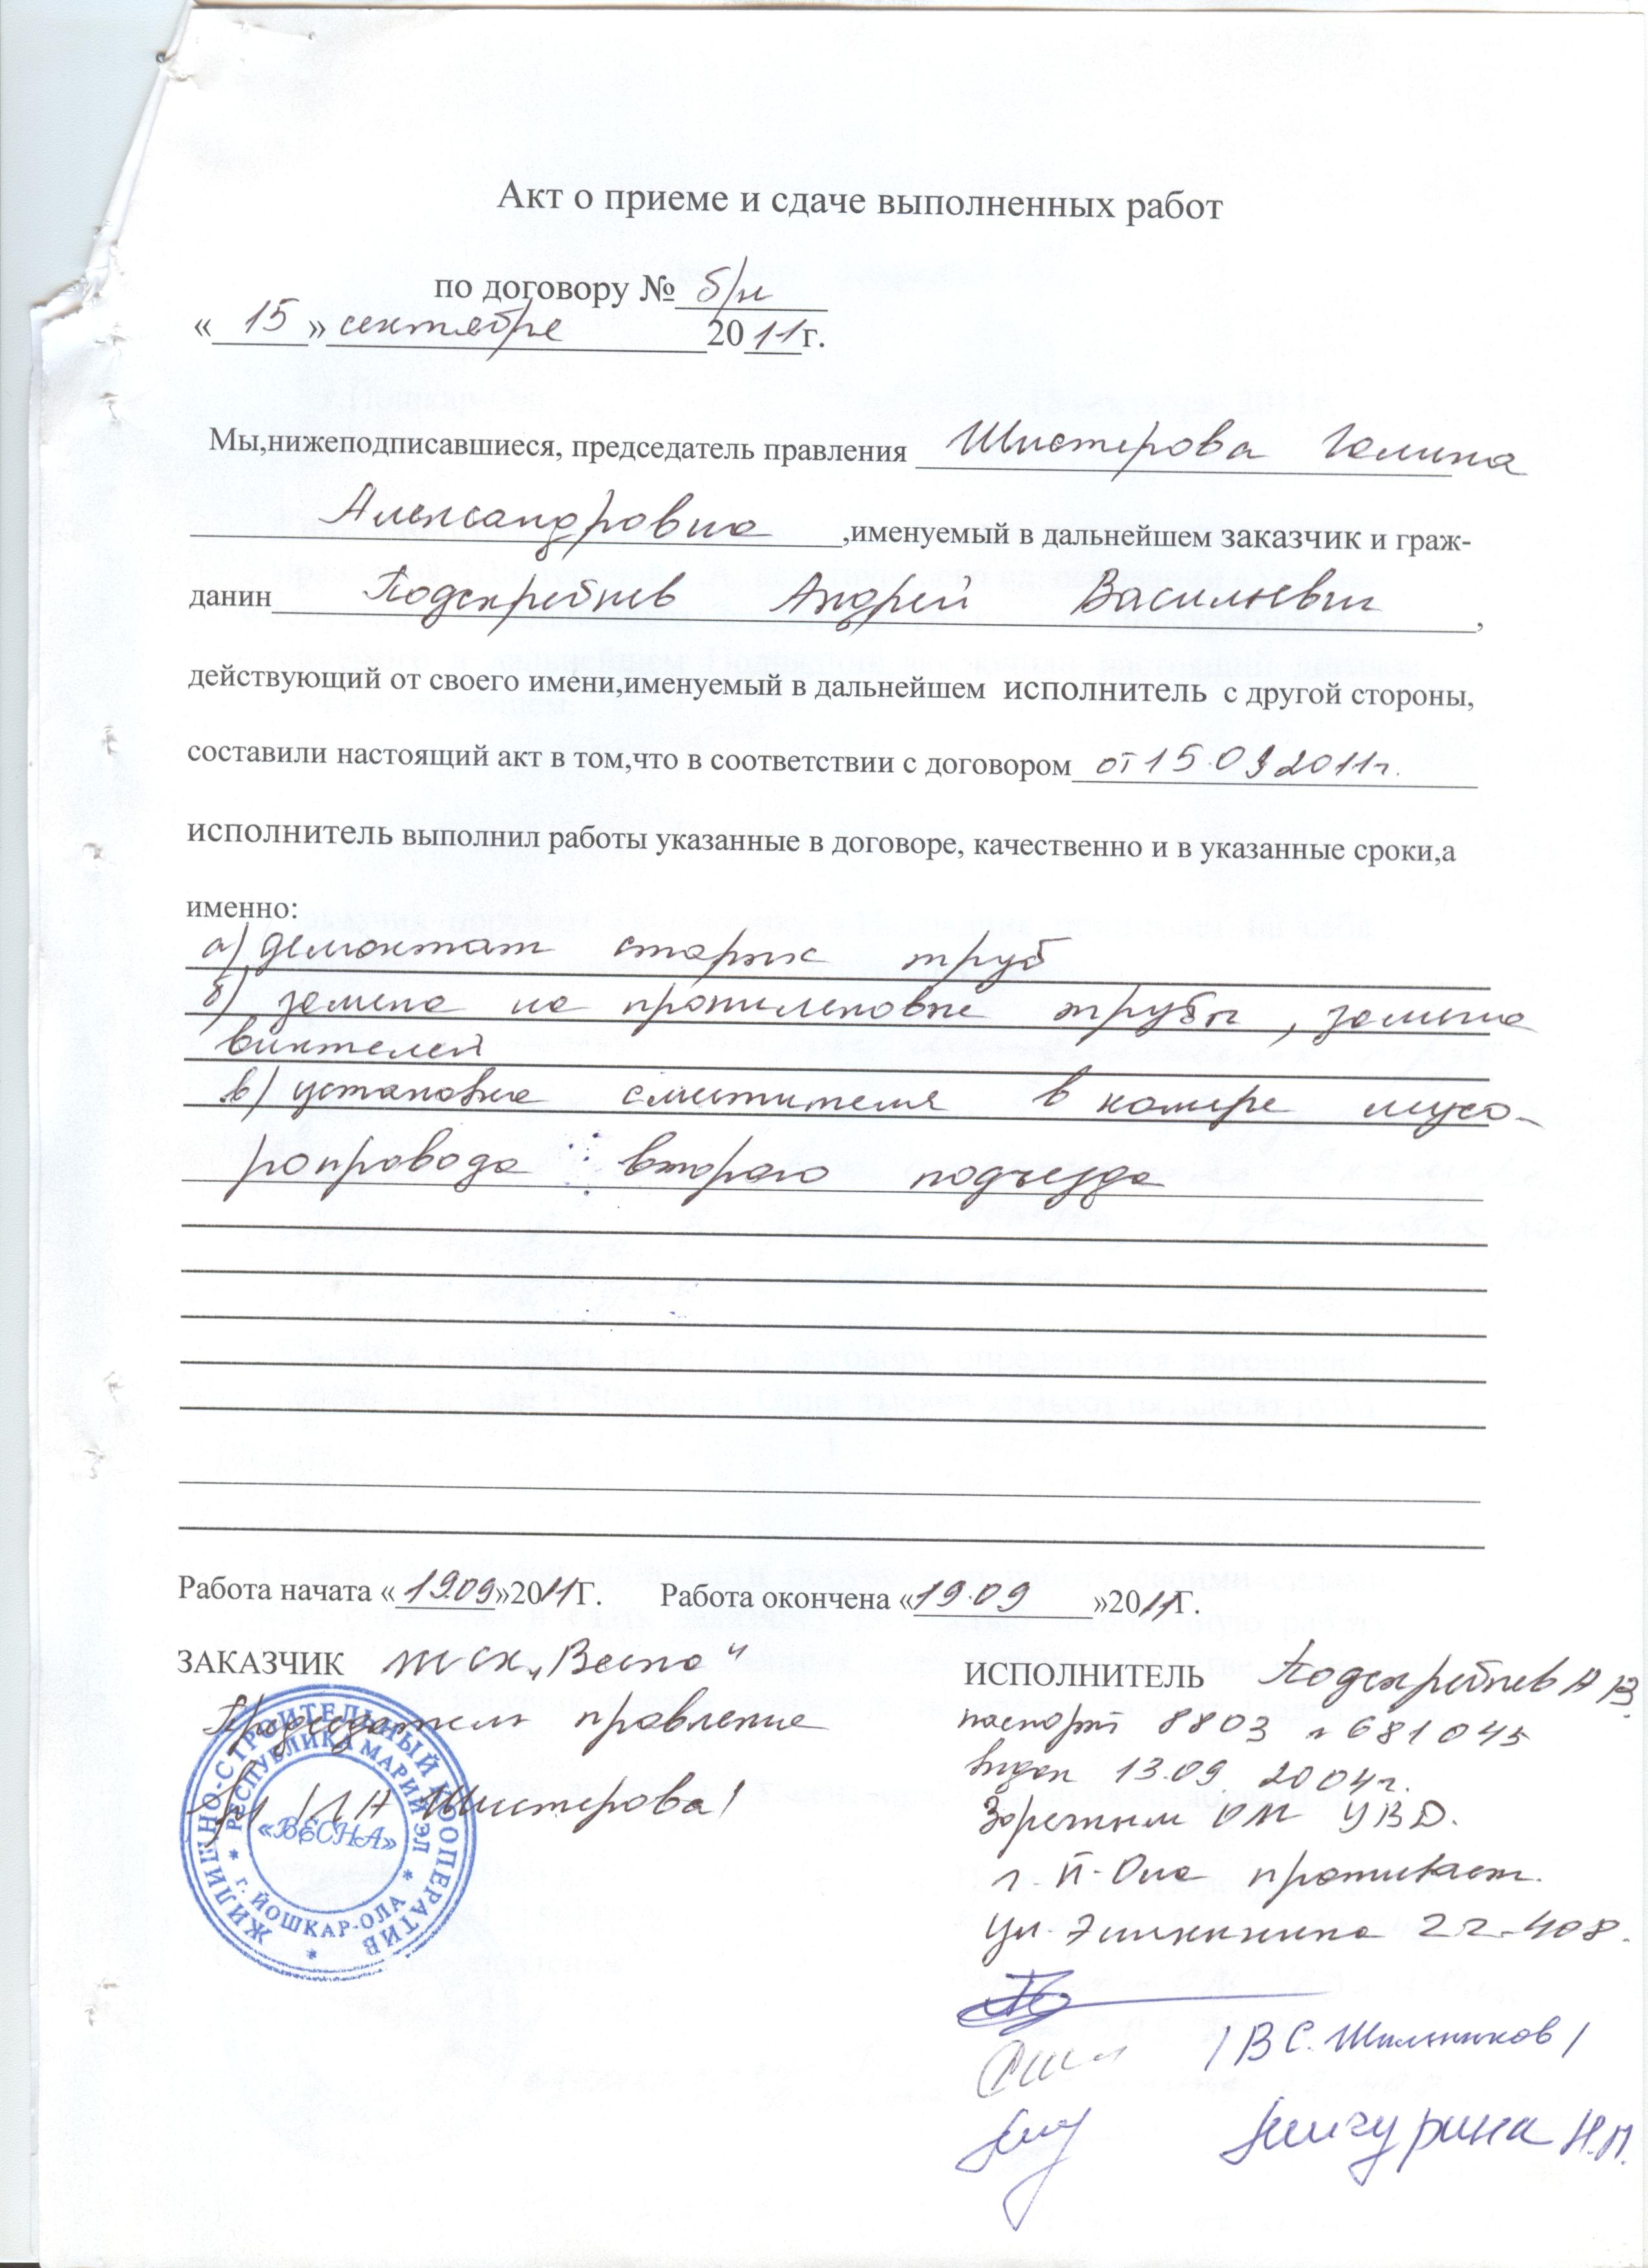 Акт о приеме и сдаче выполненных работ
по договору № б/н
« 15 » сентября 2011г.
Мы,нижеподписавшиеся, председатель правления Шистерова Галина
Александровна ,именуемый в дальнейшем заказчик и граж-
данин Подскребнев Андрей Васильевич ,
действующий от своего имени,именуемый в дальнейшем исполнитель с другой стороны,
составили настоящий акт в том,что в соответствии с договором от 15.09.2011г.
исполнитель выполнил работы указанные в договоре, качественно и в указанные сроки,а
именно:
а) демонтаж старых труб
б) замена на пропиленовые трубы, замена
вентелей
в) установка смесителя в камере мусо-
ропровода второго подъезда
Работа начата «19.09»2011Г. Работа окончена «19.09»2011Г.
ЗАКАЗЧИК ЖСК „Весна"
Председатель правления
/Г.А Шистерова/
ЖИЛИЩНО-СТРОИТЕЛЬНЫЙ КООПЕРАТИВ
РЕСПУБЛИКА МАРИЙ ЭЛ
«ВЕСНА»
* г. ЙОШКАР-ОЛА *
ИСПОЛНИТЕЛЬ Подскребнев А В.
паспорт 8803 № 681045
выдан 13.09. 2004г.
Заречным ОМ УВД.
г. Й-Ола проживает.
ул. Эшкинина 22-408.
/В С. Шильников/
Мичурина Н.П.